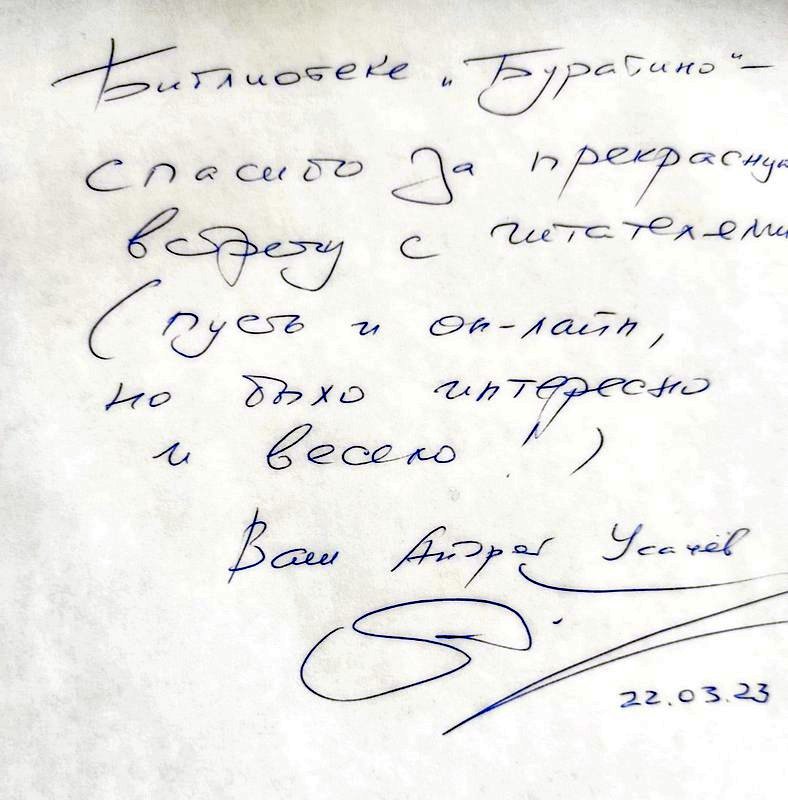 Библиотеке „Буратино“ –
спасибо за прекрасную
встречу с читателями
(пусть и он-лайн,
но было интересно
и весело!)
Ваш Андрей Усачёв
22.03.23